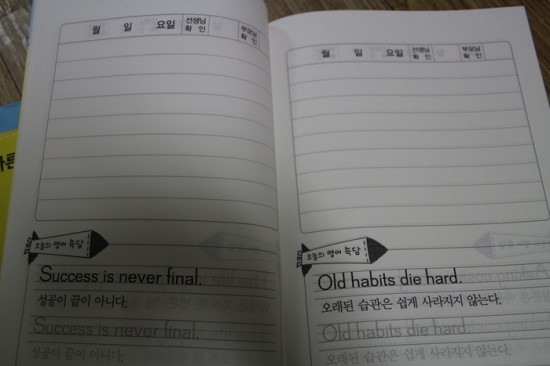 월 일 요일 선생님 확인 부모님 확인
오늘의 영어 속담
Success is never final.
성공이 끝이 아니다.
Success is never final.
성공이 끝이 아니다.
월 일 요일 선생님 확인 부모님 확인
오늘의 영어 속담
Old habits die hard.
오래된 습관은 쉽게 사라지지 않는다.
Old habits die hard.
오래된 습관은 쉽게 사라지지 않는다.